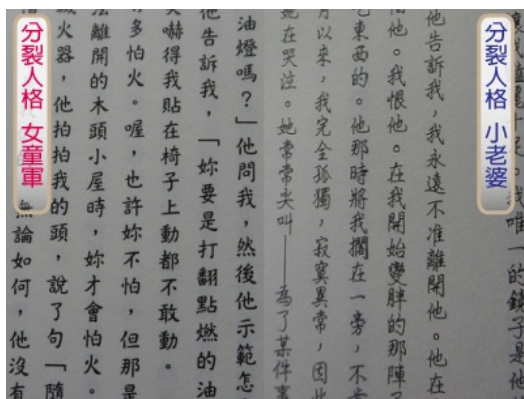 分裂人格 小老婆
唯一的鏡子是他
他告訴我，我永遠不准離開他。他在
他。我恨他。在我開始變胖的那陣子
吃東西的。他那時將我擱在一旁，不肯
月以來，我完全孤獨，寂寞異常，因此
她在哭泣。她常常尖叫——為了某件事
油燈嗎？」他問我，然後他示範怎
他告訴我，「妳要是打翻點燃的油
嚇得我貼在椅子上動都不敢動。
多怕火。喔，也許妳不怕，但那是
離開的木頭小屋時，妳才會怕火。
火器，他拍拍我的頭，說了句「隨
無論如何，他沒有
分裂人格 女童軍